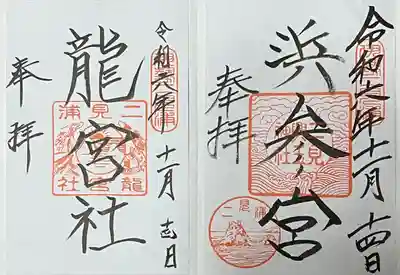 令和六年十一月十四日
浜参宮
奉拝
二見浦
令和六年十一月十四日
龍宮社
奉拝
二見浦
龍宮社